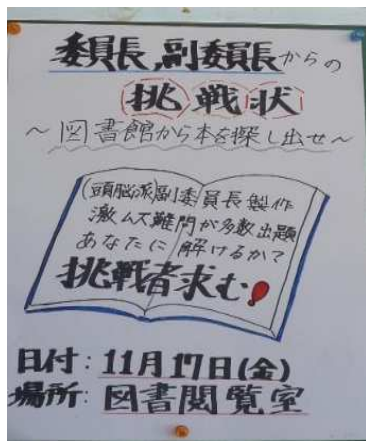 委員長,副委員長からの
挑戦状
～図書館から本を探し出せ～
(頭脳派)副委員長製作
激ムズ難問が多数出題
あなたに解けるか？
挑戦者求む!
日付:11月17日(金)
場所:図書閲覧室